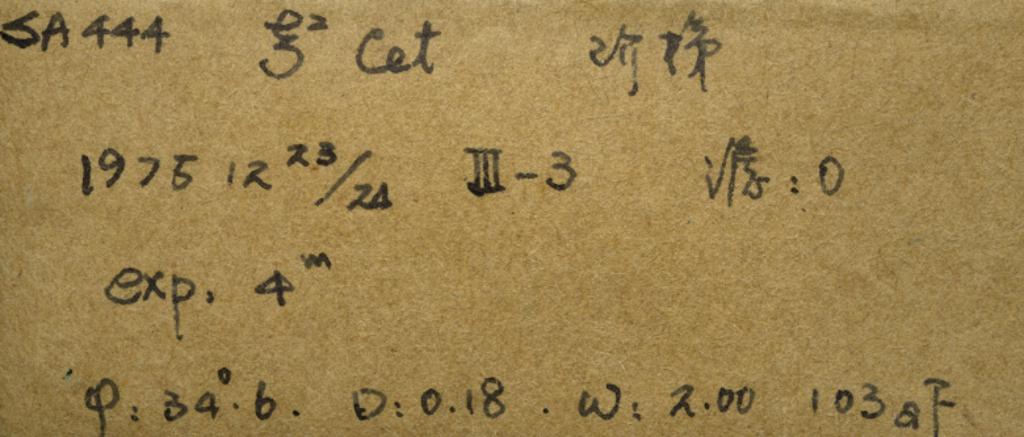 SA444 ξ² Cet 阶梯
1975 12 23/24 III-3 游:0
exp. 4ᵐ
φ: 34°.6. D: 0.18 . ω: 2.00 103aF